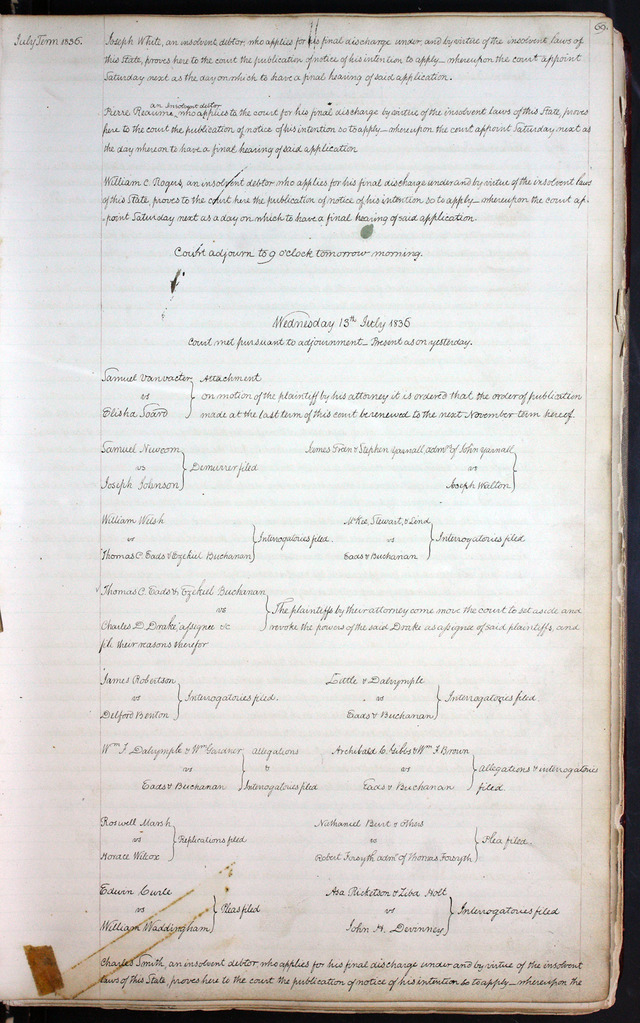 69.
July Term 1836.
Joseph White, an insolvent debtor, who applies for his final discharge under, and by virtue of the insolvent laws of
this State, proves here to the court the publication of notice of his intention to apply _ whereupon the court appoint
Saturday next as the day on which to have a final hearing of said application.
an insolvent debtor
Pierre Reaume, who applies to the court for his final discharge by virtue of the insolvent laws of this State, proves
here to the court the publication of notice of his intention so to apply _ whereupon the court appoint Saturday next as
the day whereon to have a final hearing of said application
William C. Rogers, an insolvent debtor who applies for his final discharge under and by virtue of the insolvent laws
of this State, proves to the court here the publication of notice of his intention so to apply _ whereupon the court ap-
point Saturday next as a day on which to have a final hearing of said application.
Court adjourn to 9 o'clock tomorrow morning.
Wednesday 13th July 1836
Court met pursuant to adjournment _ Present as on yesterday.
Samuel Vanvacter
vs
Elisha Soard
Attachment
on motion of the plaintiff by his attorney it is ordered that the order of publication
made at the last term of this court be renewed to the next November term hereof.
Samuel Newcom
vs
Joseph Johnson
Demurrer filed
James & Stephen Yarnall admrs of John Yarnall
vs
Joseph Walton
William Welsh
vs
Thomas C. Eads & Ezekiel Buchanan
Interrogatories filed.
McKee, Stewart, &
vs
Eads & Buchanan
Interrogatories filed
Thomas C. Eads & Ezekiel Buchanan
vs
Charles D. Drake, assignee &c
The plaintiffs by their attorney come move the court to set aside and
revoke the powers of the said Drake as assignee of said plaintiffs, and
file their reasons therefor
James Robertson
vs
Delford Benton
Interrogatories filed.
Little & Dalrymple
vs
Eads & Buchanan
Interrogatories filed
Wm F Dalrymple & Wm Gardner
vs
Eads & Buchanan
allegations
&
Interrogatories filed
Archibald C. Giles & Wm F Brown
vs
Eads & Buchanan
allegations & interrogatories
filed.
Roswell Marsh
vs
Horace Wilcox
Replications filed
Nathaniel Burt & others
vs
Robert Forsyth admr of Thomas Forsyth
Plea filed.
Edwin Curle
vs
William Waddingham
Pleas filed
Asa Ricketson & Ziba Holt
vs
John H. Devinney
Interrogatories filed
Charles Smith, an insolvent debtor, who applies for his final discharge under and by virtue of the insolvent
laws of this State, proves here to the court the publication of notice of his intention so to apply _ whereupon the